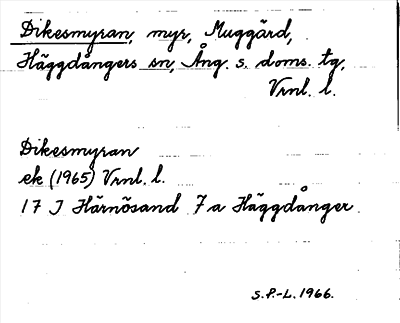 Dikesmyran, myr, Muggärd,
Häggdångers sn, Ång. s. doms. tg,
Vrnl. l.
Dikesmyran
ek (1965) Vrnl. l.
17 J Härnösand 7a Häggdånger
S.P.-L. 1966.